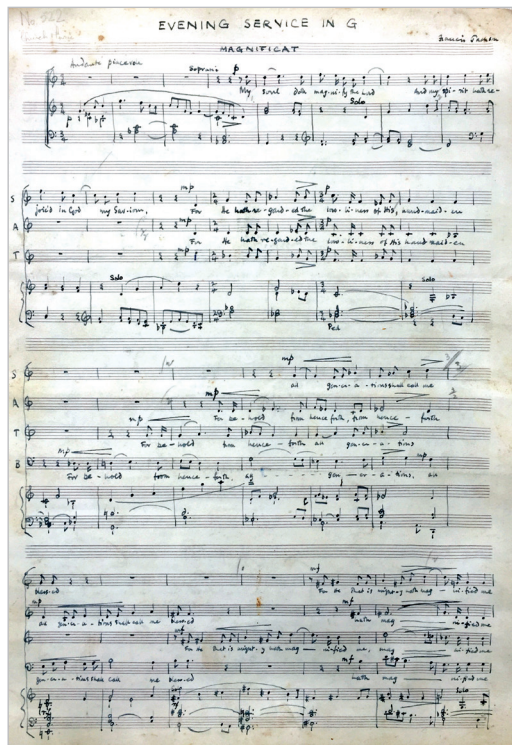 No 522
EVENING SERVICE IN G
Francis Jackson
MAGNIFICAT
Andante piacevole
Soprano p
My soul doth mag-ni-fy the Lord And my spi-rit hath re-
Solo
p
S mp p
joiced in God my Sav-iour, For He hath re-gard-ed the low-li-ness of His, hand-maid-en
A mp p
For He hath re-gard-ed the low-li-ness of His hand-maid-en
T mp p
Solo Solo
Ped
S mp
all gen-er-a-tions shall call me
A mp
For be-hold from henceforth, from hence-forth
T mp
For be-hold from hence-forth all gen-er-a-tions
B mp mp
For be-hold from hence-forth, all gen-er-a-tions, all
mf
bless-ed For he that is might-y hath mag-ni-fied me
mp mf
all gen-er-a-tions shall call me bless-ed hath mag-ni-fied me
mf
For he that is might-y hath mag-ni-fied me, mag-ni-fied me
mf
gen-er-a-tions shall call me bless-ed hath mag-ni-fied me
Solo